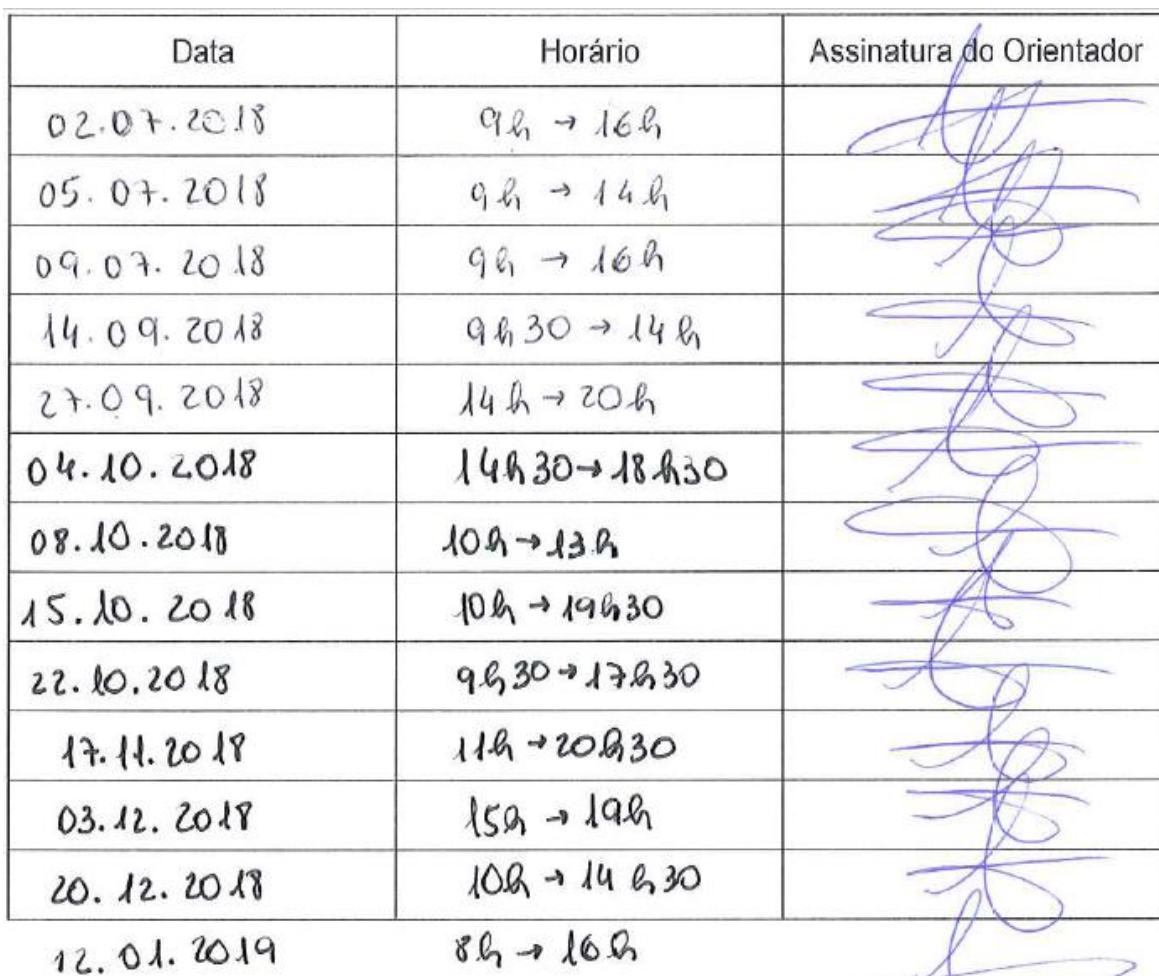 Data Horário Assinatura do Orientador
02.07.2018 9h → 16h
05.07.2018 9h → 14h
09.07.2018 9h → 16h
14.09.2018 9h30 → 14h
27.09.2018 14h → 20h
04.10.2018 14h30 → 18h30
08.10.2018 10h → 13h
15.10.2018 10h → 19h30
22.10.2018 9h30 → 17h30
17.11.2018 11h → 20h30
03.12.2018 15h → 19h
20.12.2018 10h → 14h30
12.01.2019 8h → 16h